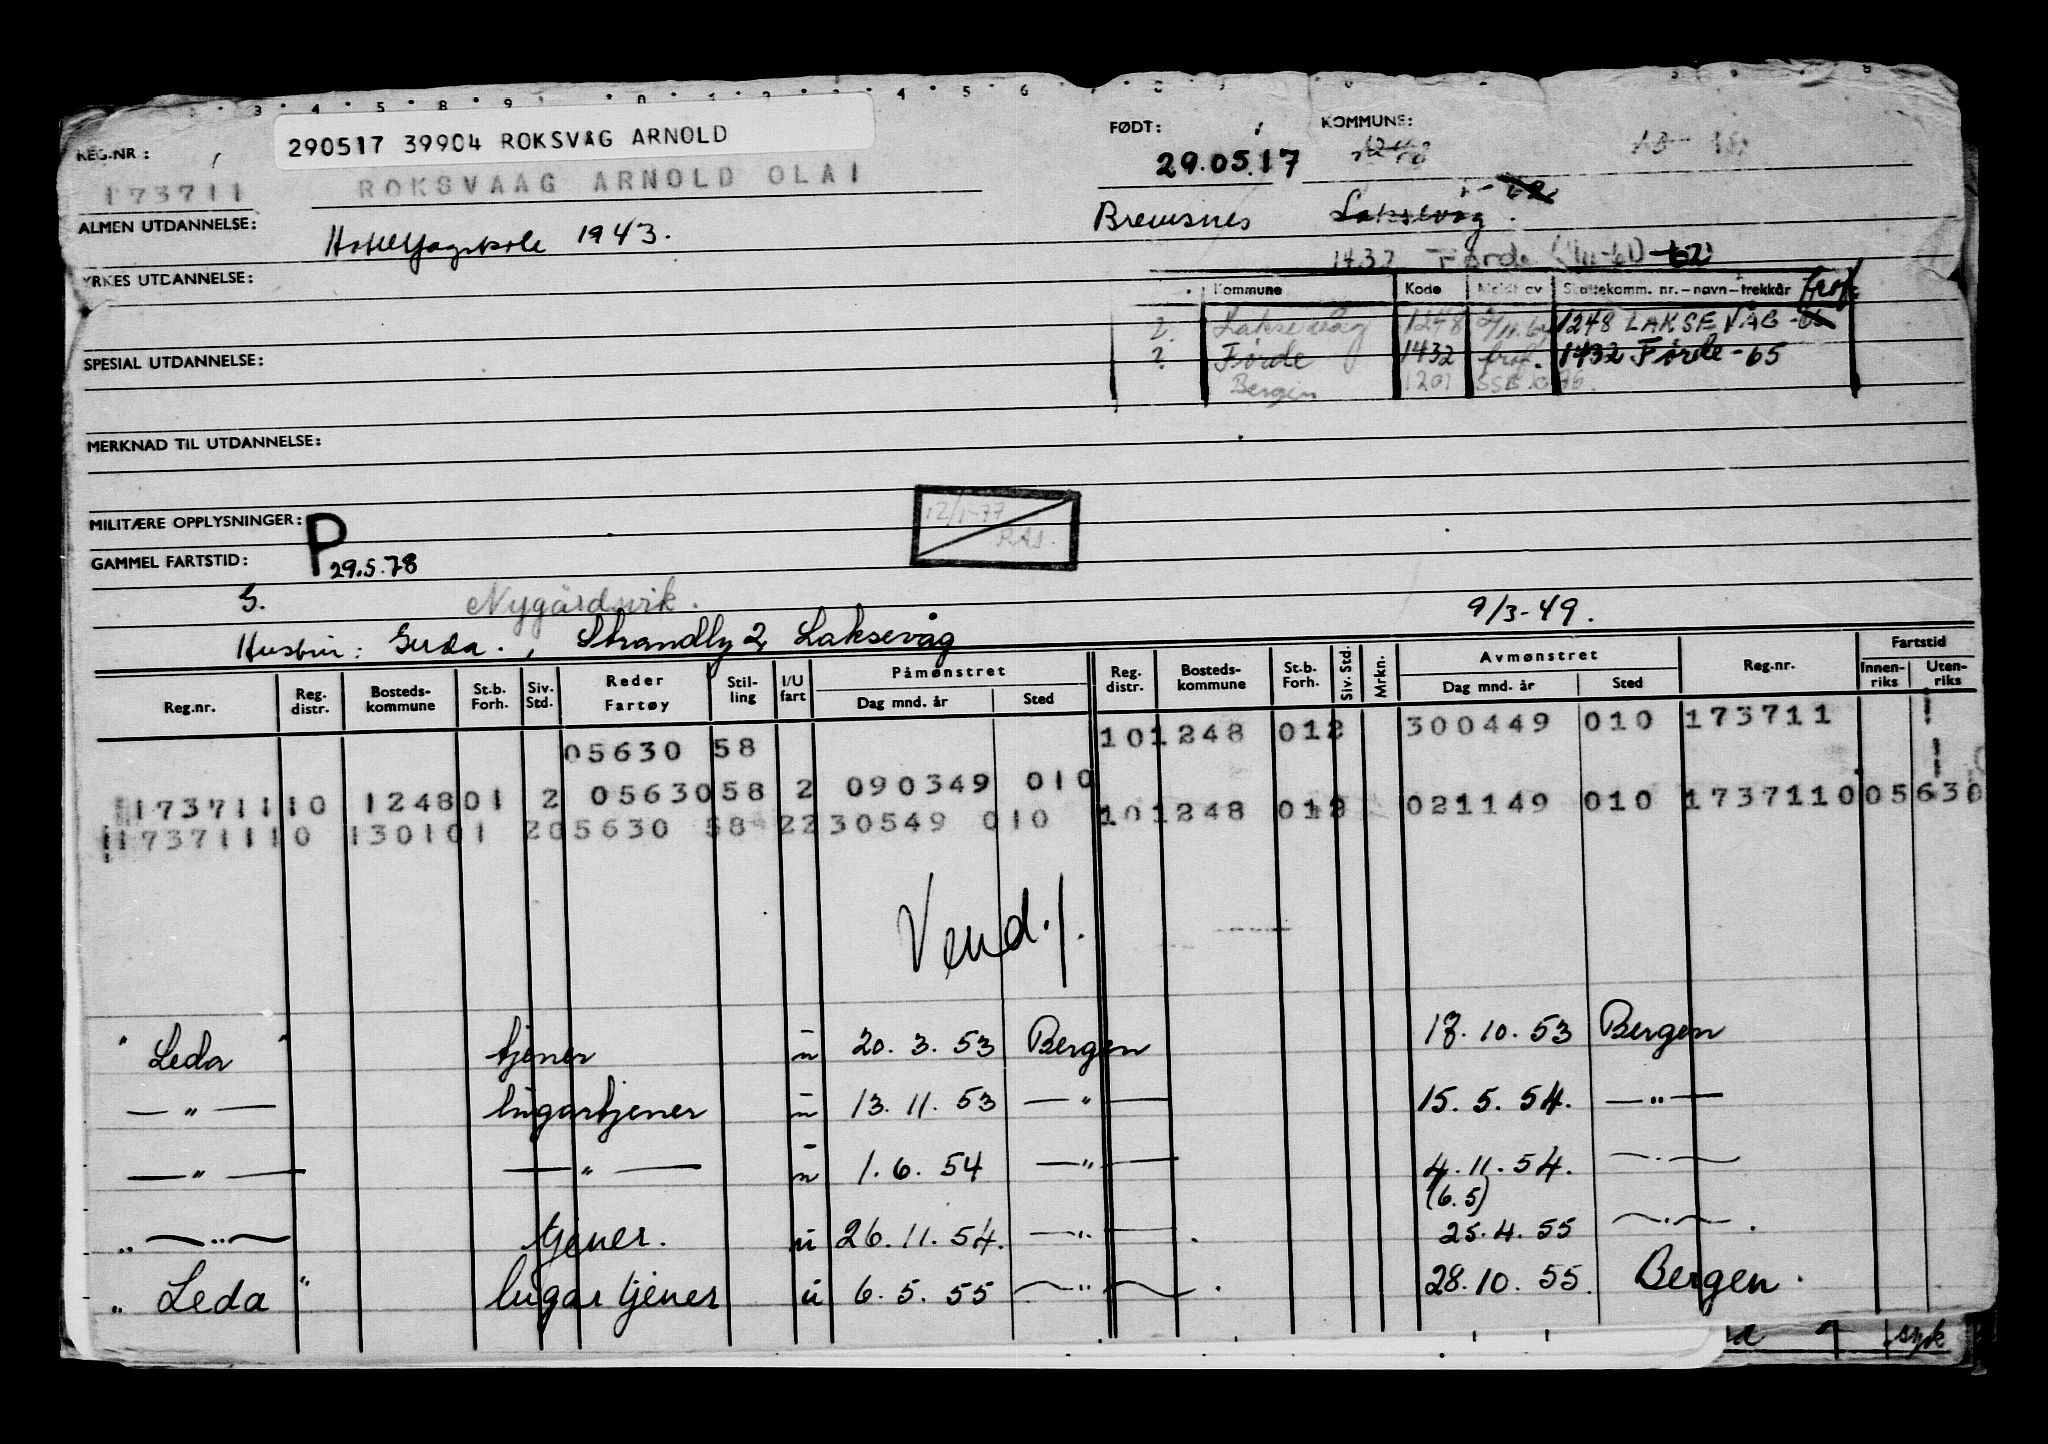 290517 39904 ROKSVÅG ARNOLD
REG.NR: 173711
ROKSVAAG ARNOLD OLAI
FØDT: 29.05.17
KOMMUNE:
Bremsnes Laksevåg
ALMEN UTDANNELSE: Hotellfagskole 1943.
1432 Førde -62
YRKES UTDANNELSE:
Kommune Kode Meldt av Skattekomm. nr.-navn-trekkår
? Laksevåg 1248 1248 LAKSEVÅG -65
? Førde 1432 frof. 1432 Førde -65
Bergen 1201
SPESIAL UTDANNELSE:
MERKNAD TIL UTDANNELSE:
MILITÆRE OPPLYSNINGER:
12/1-77
GAMMEL FARTSTID: P 29.5.78
G. Nygårdsvik. 9/3-49.
Hustru: Gerda., Strandly 2, Laksevåg
Reg.nr. Reg. distr. Bosteds- kommune St.b. Forh. Siv. Std. Reder Fartøy Stil- ling I/U fart Påmønstret Dag mnd. år Sted Reg. distr. Bosteds- kommune St.b. Forh. Siv. Std. Mrkn. Avmønstret Dag mnd. år Sted Reg.nr. Fartstid Innen- riks Uten- riks
05630 58 10 1248 01 2 300449 010 173711
173711 10 1248 01 2 05630 58 2 090349 010
10 1248 01 2 021149 010 173711 0 05630
173711 10 1301 01 2 05630 58 2 230549 010
Vend./.
" Leda " tjener u 20. 3. 53 Bergen 17. 10. 53 Bergen
— " — lugartjener u 13. 11. 53 — " — 15. 5. 54. — " —
— " — — " — u 1. 6. 54 — " — 4. 11. 54. — " —
(6.5)
" — " — tjener. u 26. 11. 54. — " — 25. 4. 55 — " —
" Leda " lugartjener u 6. 5. 55 — " — 28. 10. 55. Bergen.
syk